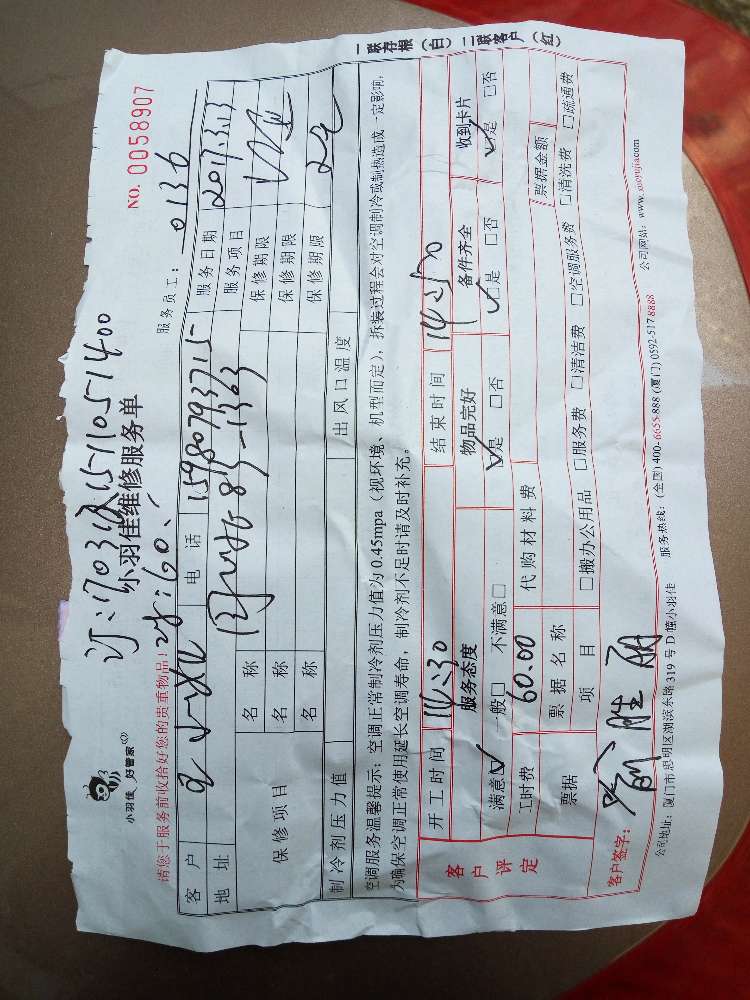 一联存根(白) 二联客户(红)
小羽佳 好管家
NO. 0058907
小羽佳维修服务单
请您于服务前收拾好您的贵重物品!
服务员工: 0136
客户 电话 15980793715 服务日期 2017.3.13
地址 服务项目
保修项目 名称 保修期限
名称 保修期限
名称 保修期限
制冷剂压力值 出风口温度
空调服务温馨提示: 空调正常制冷剂压力值为0.45mpa(视环境、机型而定), 拆装过程会对空调制冷或制热造成一定影响,
为确保空调正常使用延长空调寿命, 制冷剂不足时请及时补充。
客户评定 开工时间 14:30 结束时间 14:50
服务态度 物品完好 备件齐全 收到卡片
满意☑ 一般□ 不满意□ ☑是 □否 ☑是 □否 ☑是 □否
工时费 60.00 代购材料费
票据 票据名称 票据金额
项目 □搬办公用品 □服务费 □清洁费 □空调服务费 □清洗费 □疏通费
客户签字:
公司地址: 厦门市思明区湖滨东路319号D幢小羽佳 服务热线: (全国) 400-6655-888 (厦门) 0592-5178888 公司网站: www.xiaoyujia.com